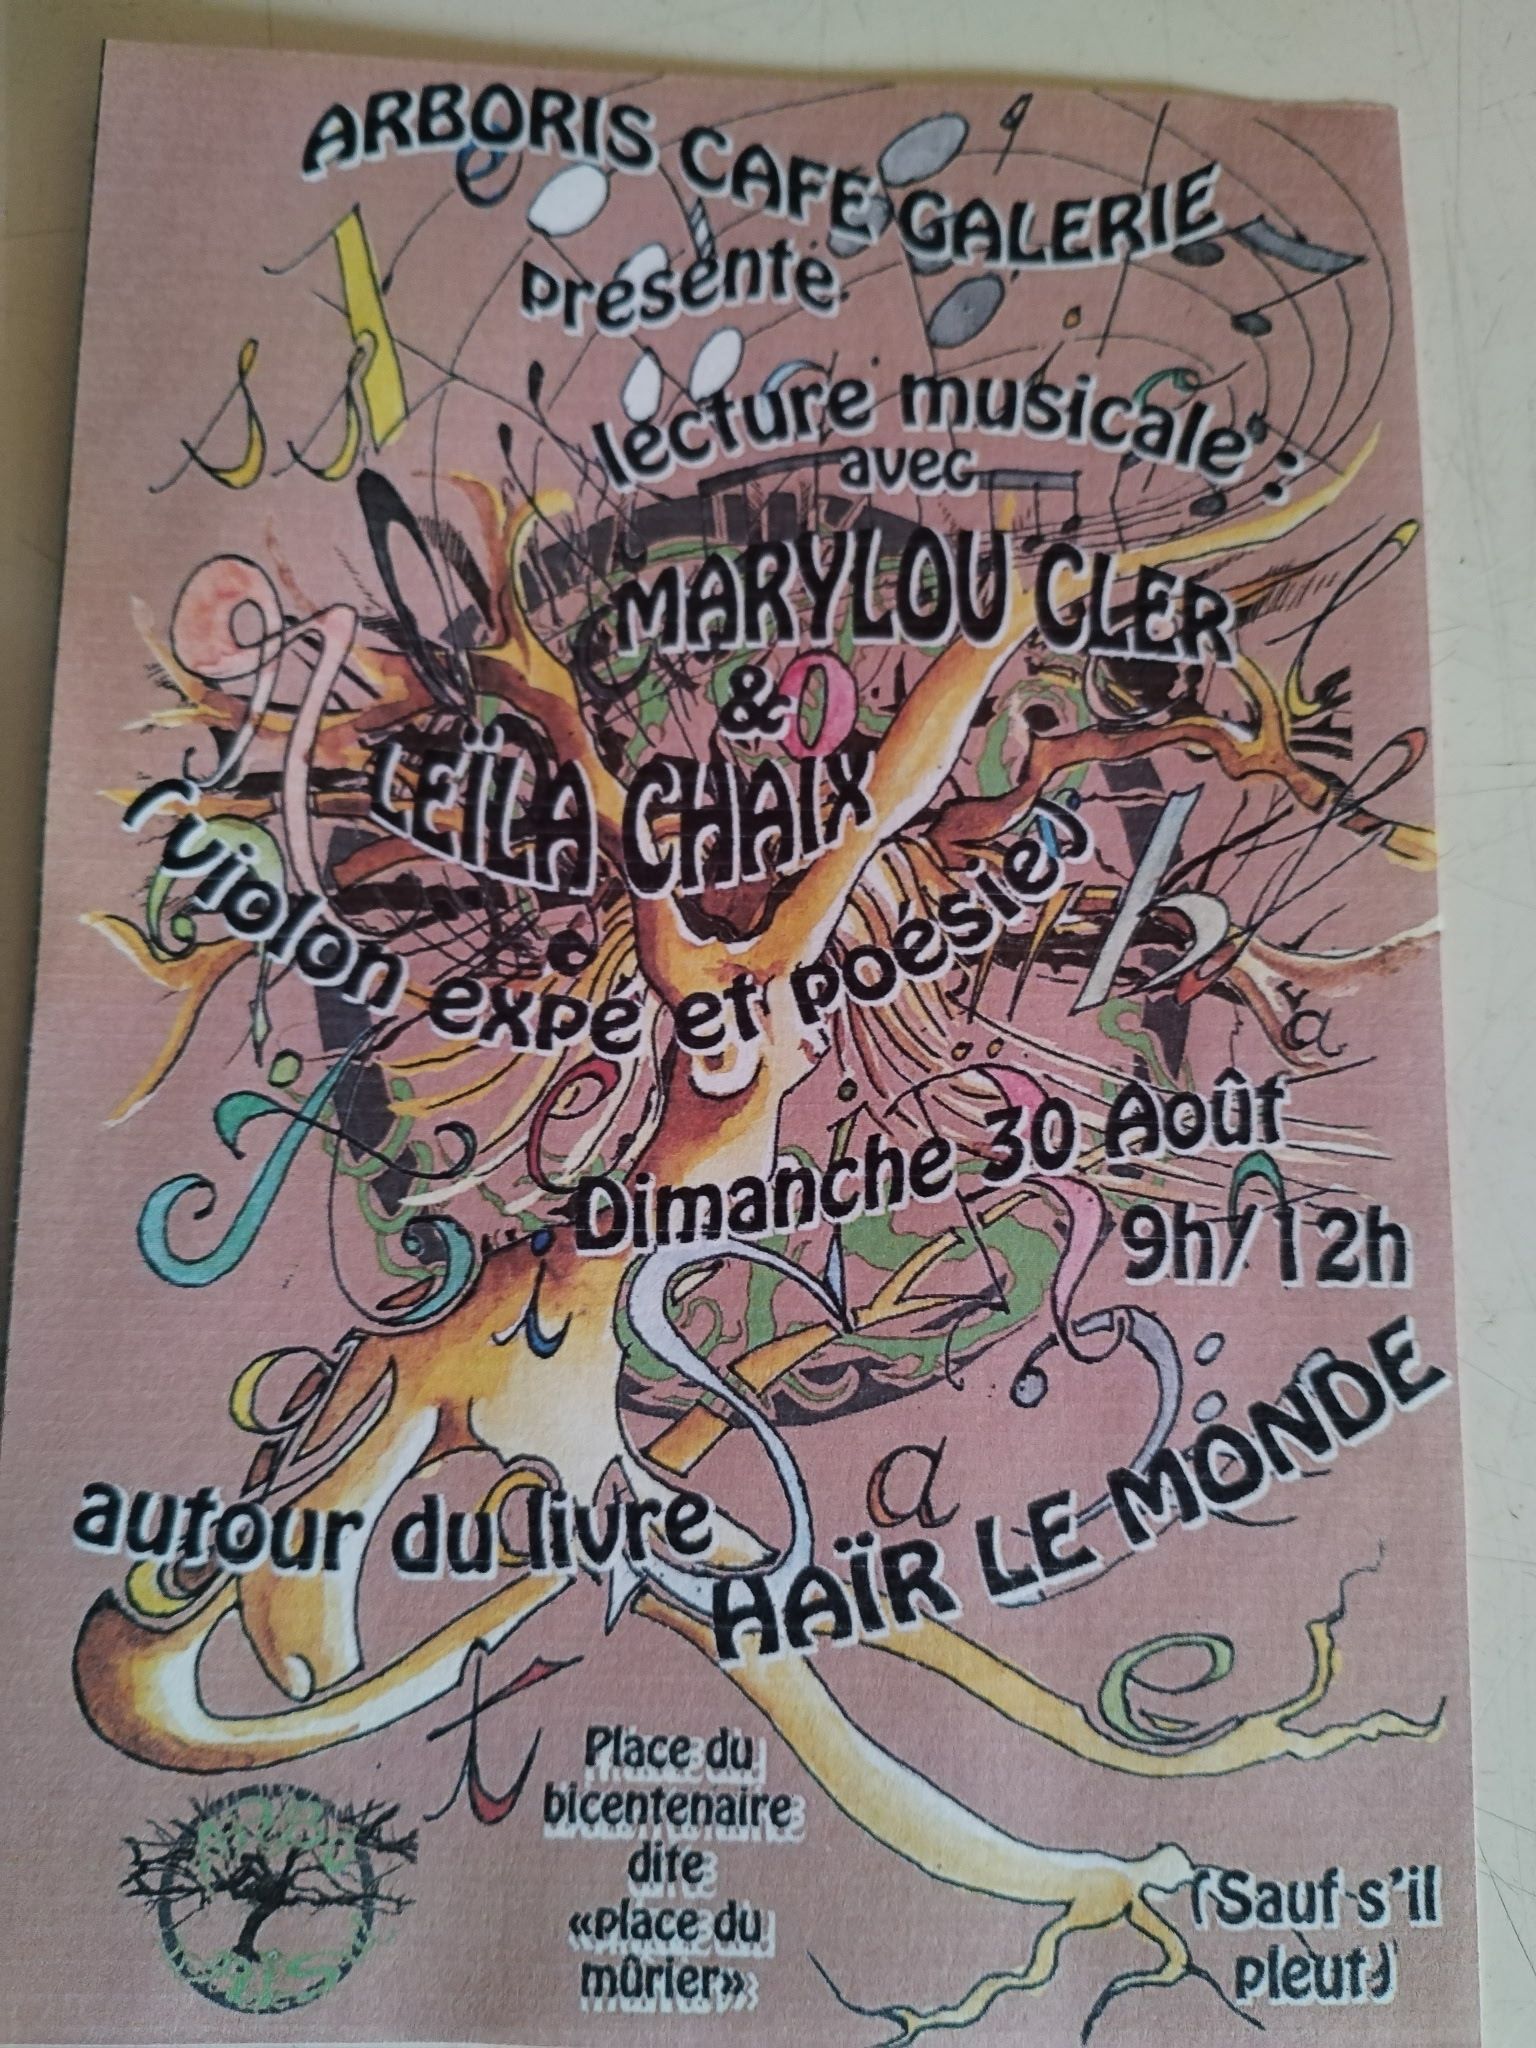 ARBORIS CAFE GALERIE
présente
lecture musicale :
avec
MARYLOU CLER
&
LEÏLA CHAIX
(violon expé et poésie)
Dimanche 30 Août
9h/12h
autour du livre
HAÏR LE MONDE
Place du
bicentenaire
dite
«place du
mûrier»
(Sauf s'il
pleut)